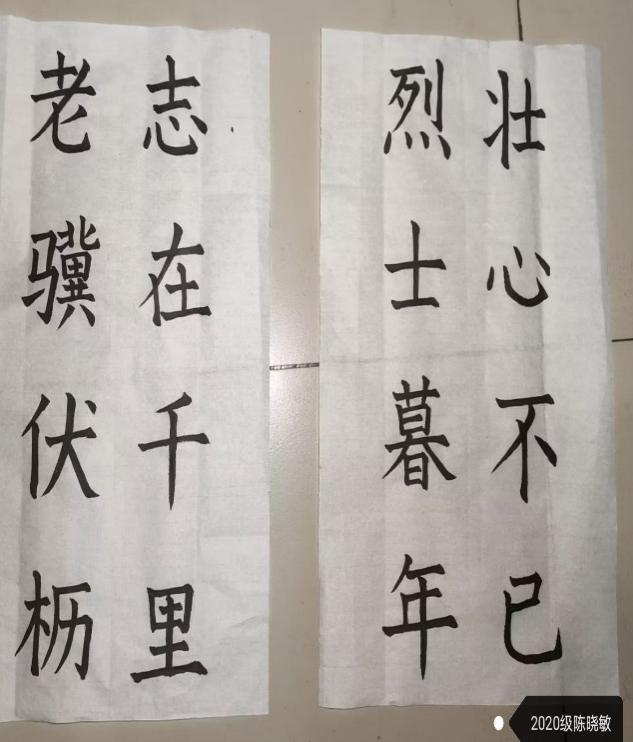 老骥伏枥
志在千里
烈士暮年
壮心不已
2020级陈晓敏